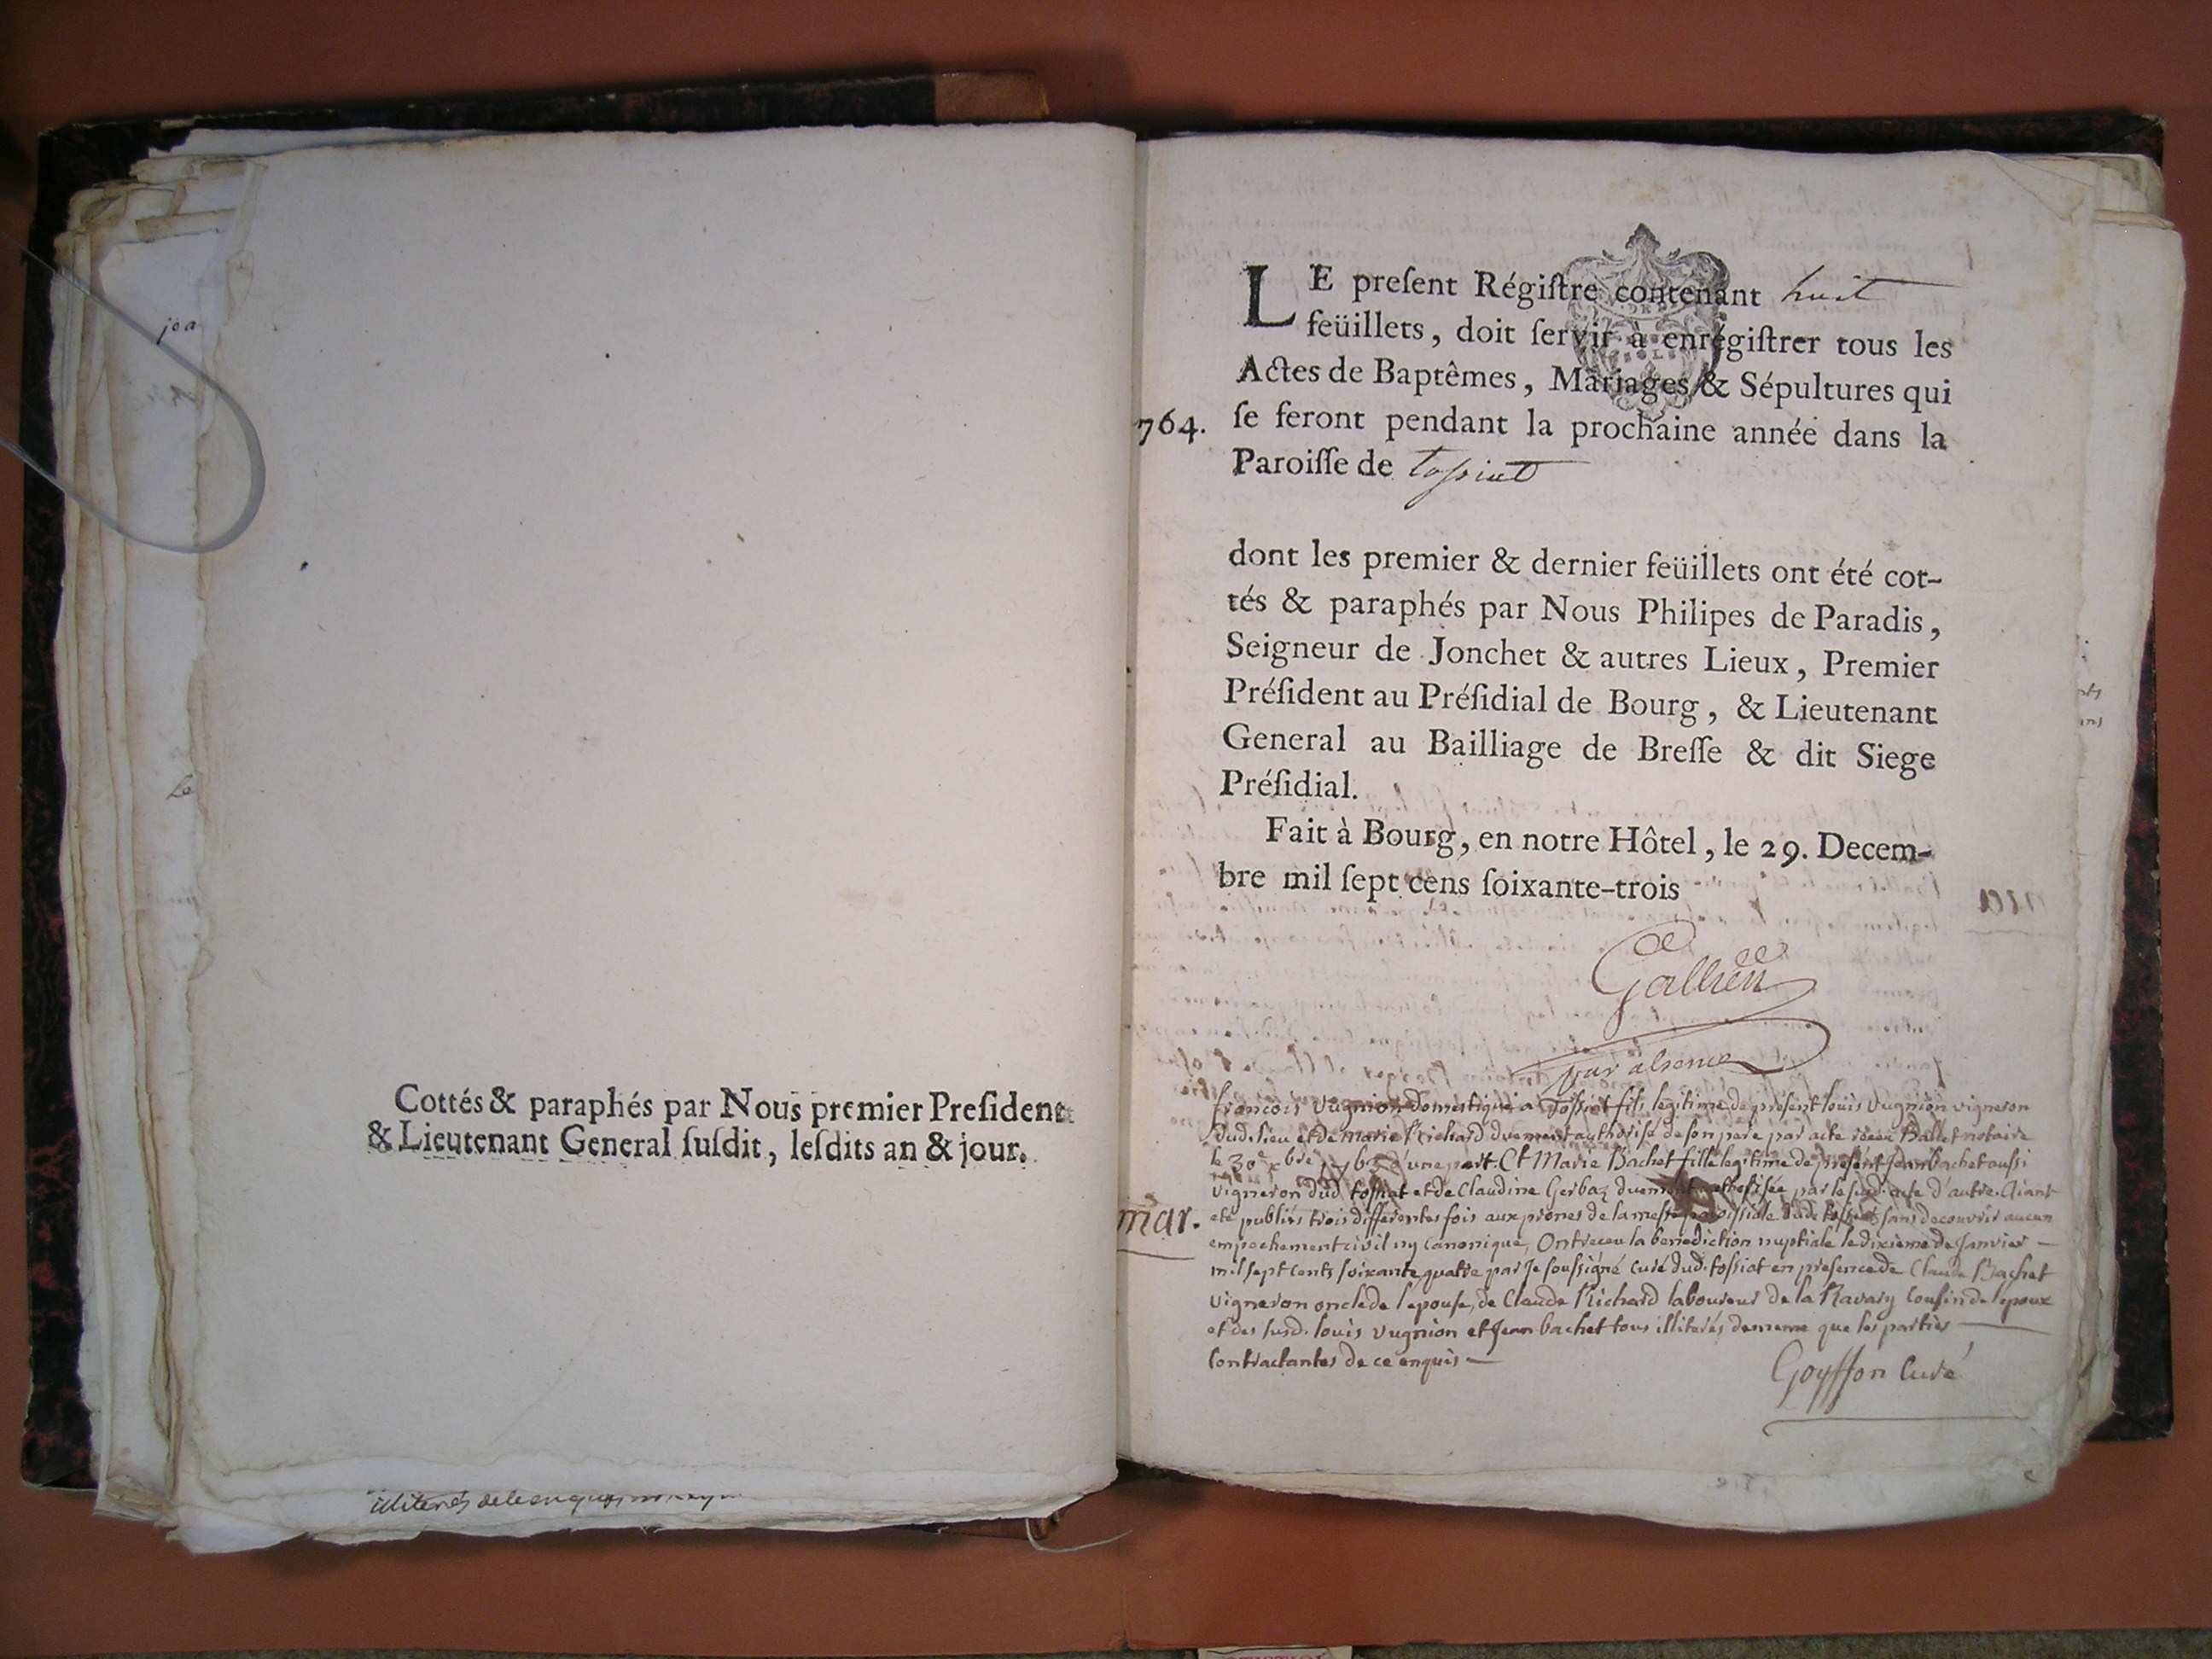 Cottés & paraphés par Nous premier Preſident
& Lieutenant General ſuſdit, leſdits an & jour.
LE preſent Régiſtre contenant huit
feüillets, doit ſervir à enrégiſtrer tous les
Actes de Baptêmes, Mariages & Sépultures qui
764. ſe feront pendant la prochaine année dans la
Paroiſſe de tossiat
dont les premier & dernier feüillets ont été cot-
tés & paraphés par Nous Philipes de Paradis,
Seigneur de Jonchet & autres Lieux, Premier
Préſident au Préſidial de Bourg, & Lieutenant
General au Bailliage de Breſſe & dit Siege
Préſidial.
Fait à Bourg, en notre Hôtel, le 29. Decem-
bre mil ſept cens ſoixante-trois
Gallien
par absence
francois vugnion domestique a Tossiat fils legitime de présent louis vugnion vigneron
dud. lieu et de marie Richard duement authorisé de son pere par acte receu Ballet notaire
le 30e xbre 1763 d'une part. Et Marie Bachet fille legitime de présent Jean bachet aussi
vigneron dud tossiat et de Claudine Gerbaz duement par le sud. acte d'autre. Aiant
mar. eté publiés trois differentes fois aux prones de la messe paroissiale dud. tossiat sans decouvrir aucun
empechement civil ny canonique, Ont receu la benediction nuptiale le dixieme de Janvier
mil sept cents soixante quatre par Je soussigné curé dud. tossiat en presence de Claude Bachet
vigneron oncle de l'epouse, de Claude Richard laboureur de la Ravary cousin de l'epoux
et des susd. louis vugnion et Jean bachet tous illiterés de meme que les parties
contractantes de ce enquis
Goyffon Curé